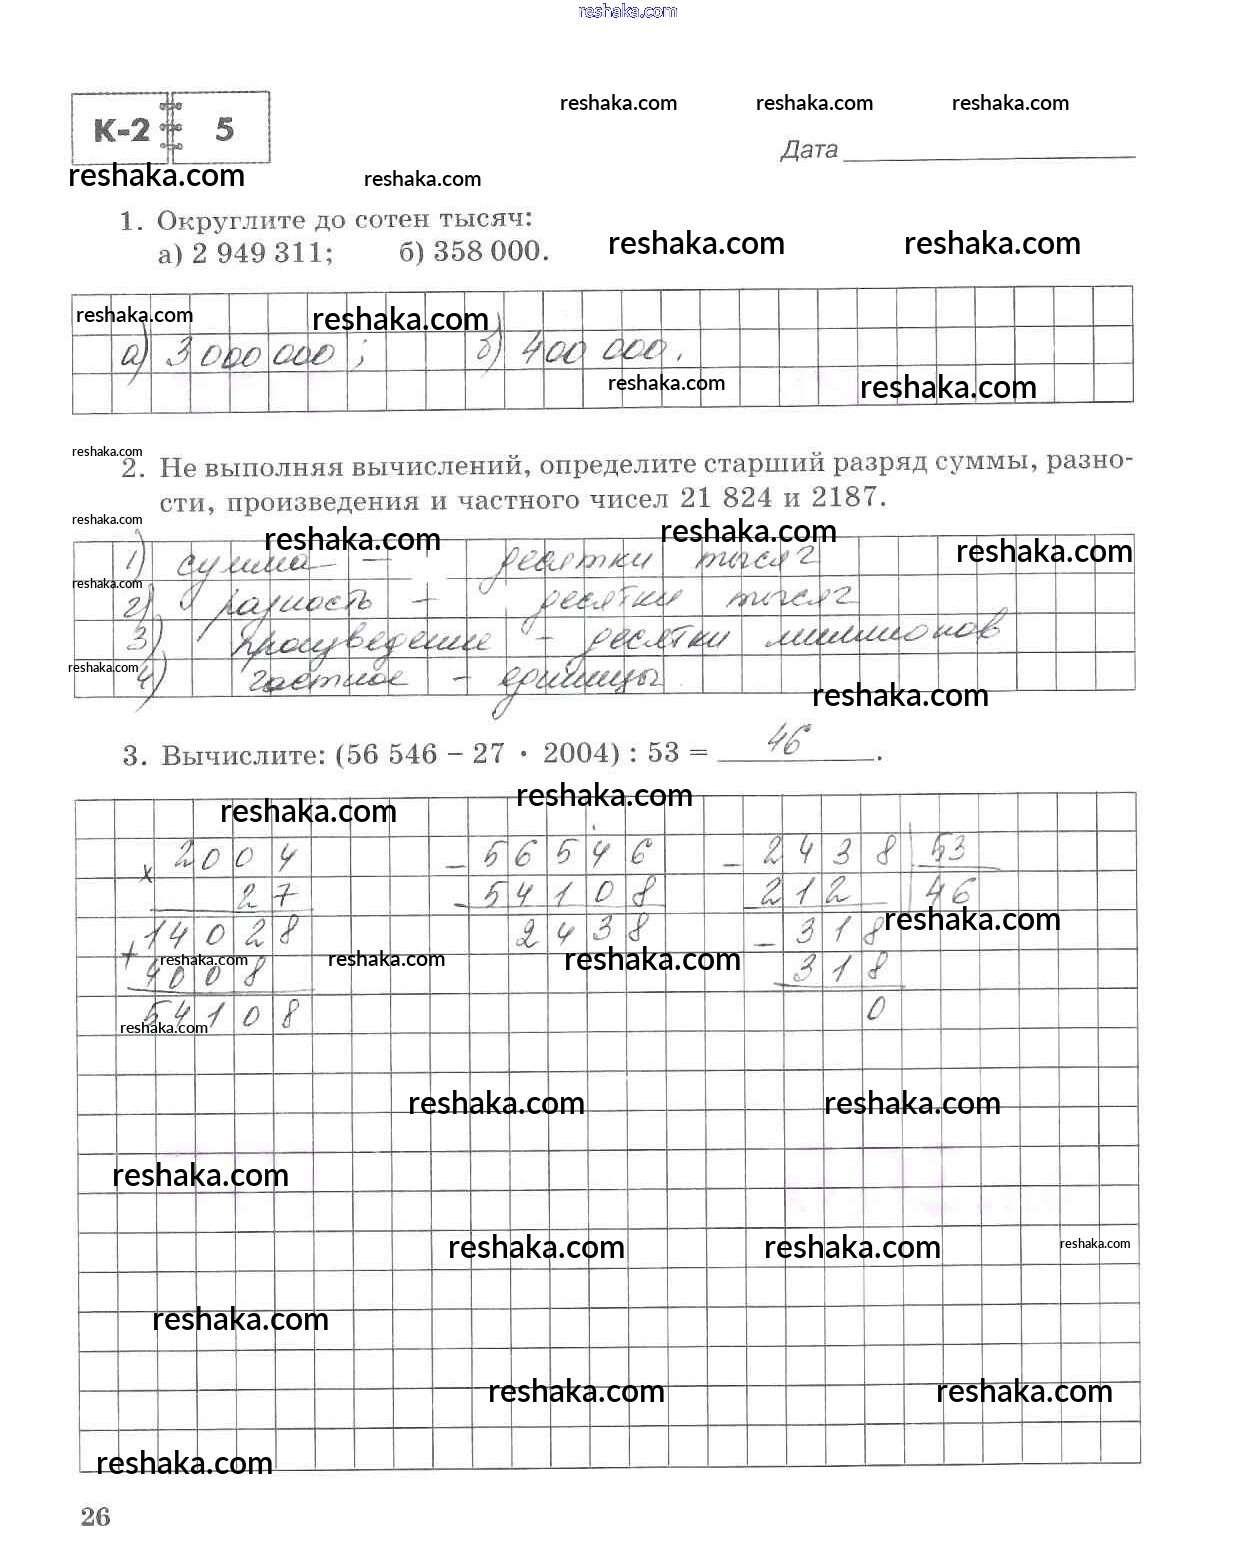 reshaka.com
К-2 5
reshaka.com reshaka.com reshaka.com
Дата
reshaka.com reshaka.com
1. Округлите до сотен тысяч:
а) 2 949 311; б) 358 000.
reshaka.com reshaka.com
reshaka.com reshaka.com
а) 3 000 000 ; б) 400 000.
reshaka.com reshaka.com
reshaka.com
2. Не выполняя вычислений, определите старший разряд суммы, разно-
сти, произведения и частного чисел 21 824 и 2187.
reshaka.com reshaka.com reshaka.com
1) сумма – десятки тысяч
reshaka.com reshaka.com
2) разность – десятки тысяч
3) произведение – десятки миллионов
reshaka.com
4) частное – единицы
reshaka.com
3. Вычислите: (56 546 – 27 · 2004) : 53 = 46.
reshaka.com reshaka.com
x 2004 – 56546 – 2438 53
27 – 54108 212 46
reshaka.com
14028 2438 – 318
reshaka.com reshaka.com reshaka.com
+ 4008 318
54108 0
reshaka.com
reshaka.com reshaka.com
reshaka.com
reshaka.com reshaka.com reshaka.com
reshaka.com
reshaka.com reshaka.com
reshaka.com
26